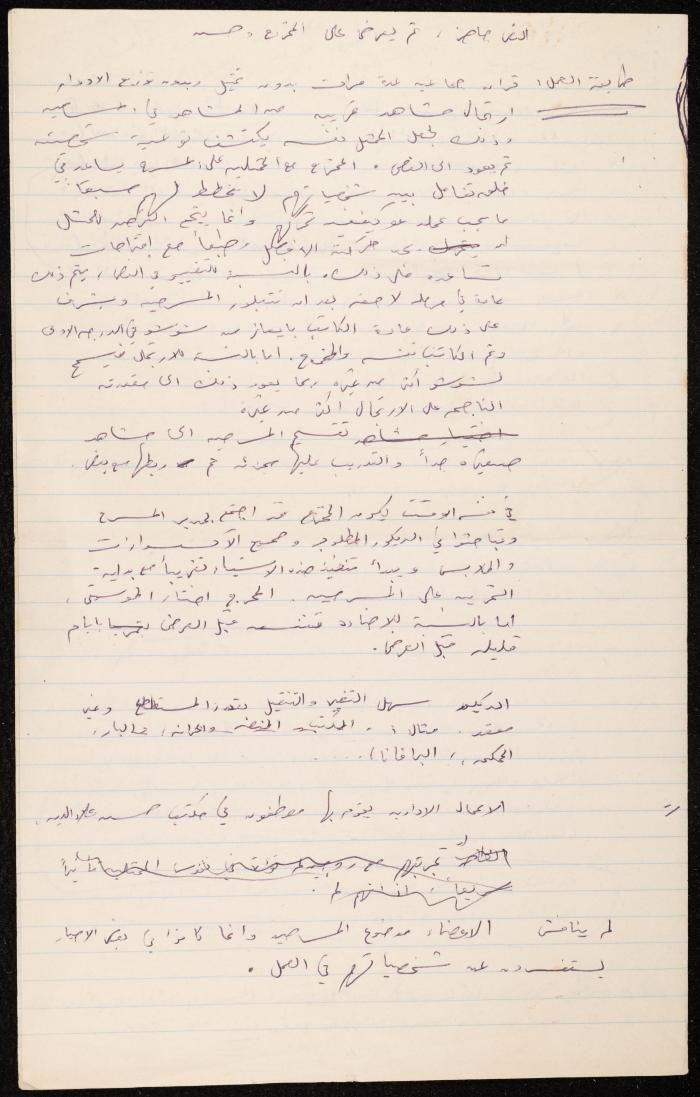 النص جاهز، ثم يعرض على المخرج وحسن
طريقة العمل: قراءة جماعية لمدة مرات بدون تمثيل وبدون توزيع الادوار
ارتجال مشاهد قريبة من المشاهد في المسرحية
وذلك لجعل الممثل نفسه يكتشف نوعية شخصيته
ثم يعود الى النص. المخرج مع الممثلين على المسرح يساعد في
خلق تفاعل بين شخصياتهم لا يخطط لهم مسبقا
ما يجب عمله او كيفية تحركهم وانما يتيح الفرصة للممثل
ان يجد حركته الافضل وطبعاً مع اقتراحات
تساعده على ذلك. بالنسبة للتغيير في النص، يتم ذلك
عادة في مرحلة لاحقة بعد ان تتبلور المسرحية ويشرف
على ذلك عادة الكاتب بايعاز من شوشو في الدرجة الاولى
ومن الكاتب نفسه والمخرج. اما بالنسبة للارتجال فيسمح
لشوشو اكثر من غيره ربما يعود ذلك الى مقدرته
الناجحة على الارتجال اكثر من غيره
اختيار مشاهد تقسيم المسرحية الى مشاهد
صغيرة جداً والتدريب عليها مجزئة ثم ربطها مع بعض.
في نفس الوقت يكون المخرج قد اجتمع بمدير المسرح
وتباحثوا في الديكور المطلوب وجميع الاكسسوارات
والملابس ويبدأ تنفيذ هذه الاشياء تقريباً مع بداية
التمرين على المسرحية. المخرج اختار الموسيقى،
اما بالنسبة للاضاءة قبل العرض بايام
قليلة قبل العرض.
الديكور سهل التغيير والتنقيل بقدر المستطاع وغير
معقد. مثال: المكتب، المنصة والخزانة، البار،
المحكمة، البرافانا) .....
الاعمال الادارية يقوم بها موظفون في مكتب حسن علاء الدين.
لم يناقش الاعضاء موضوع المسرحية وانما كانوا في بعض الاحيان
يستفسرون عن شخصياتهم في العمل.